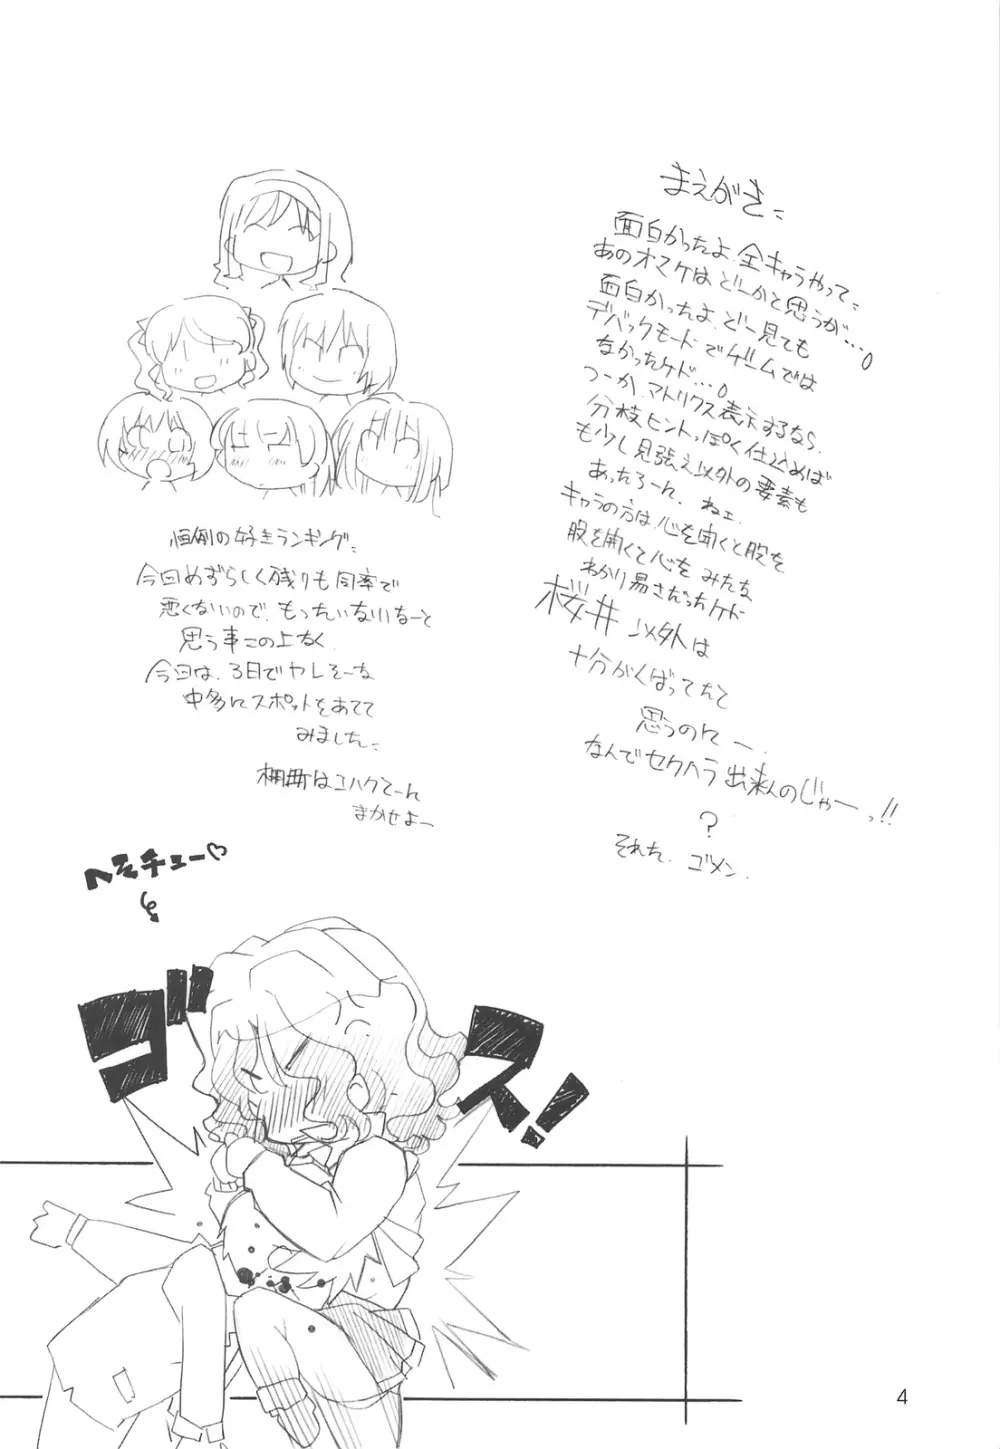 まえがき:
面白かったよ全キャラやって:
あのオマケはどーかと思うが…。
面白かったよ、どー見ても
デバックモードでゲームでは
なかったケド…。
つーか、マトリクス表示するなら、
分枝ヒントっぽく仕込めば
も少し見張え以外の要素も
あったろーに、ねェ。
キャラの方は、心を開くと股を
股を開くと心を みたな
わかり易さだったケド
桜井以外は
十分がんばってたと
思うのにー、
なんでセクハラ出来んのじゃーっ!!
?
それも、ゴメン。
恒例の好きランキング:
今回めずらしく残りも同率で
悪くないので、もったいないなーと
思う事この上なく
今回は、3日でヤレそーな
中多にスポットをあてて
みました:
棚町はコハクてーに
まかせよー
ヘそチュー♡
ゴス!
4